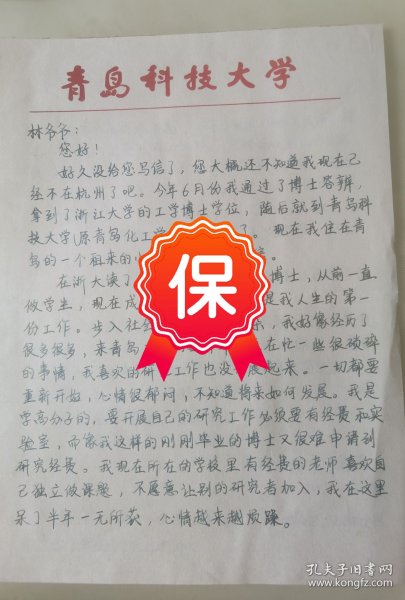 青岛科技大学
林爷爷：
您好！
好久没给您写信了，您大概还不知道我现在已
经不在杭州了吧。今年6月份我通过了博士答辩，
拿到了浙江大学的工学博士学位，随后就到青岛科
技大学(原青岛化工学 了。现在我住在青
岛的一个租来的小
在浙大读了 博士，从前一直
做学生，现在成 是我人生的第一
份工作。步入社会 我好像经历了
很多很多，来青岛 在忙一些很琐碎
的事情，我喜欢的研 工作也没 展起来。一切都要
重新开始，心情很郁闷，不知道将来如何发展。我是
学高分子的，要开展自己的研究工作必须要有经费和实
验室，而像我这样的刚刚毕业的博士又很难申请到
研究经费。我现在所在的学校里有经费的老师喜欢自
己独立做课题，不愿意让别的研究者加入，我在这里
呆了半年一无所获，心情越来越烦躁。
保
孔夫子旧书网
www.kongfz.com